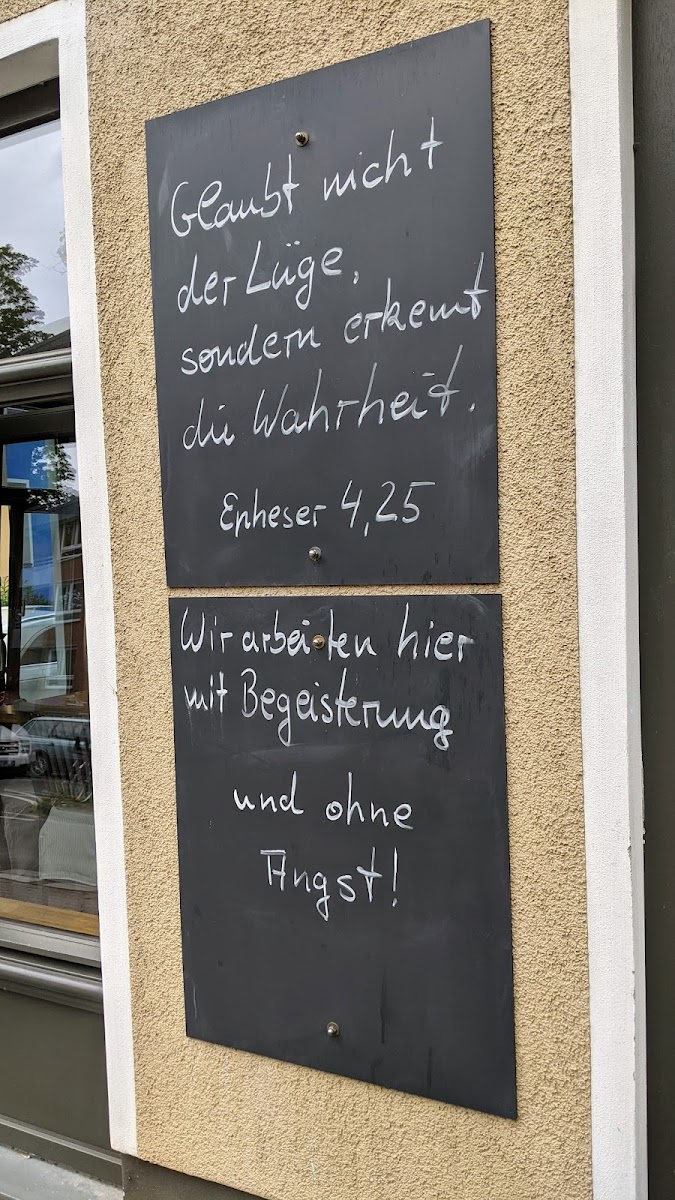 Glaubt nicht
der Lüge,
sondern erkennt
die Wahrheit.
Epheser 4,25
Wir arbeiten hier
mit Begeisterung
und ohne
Angst!